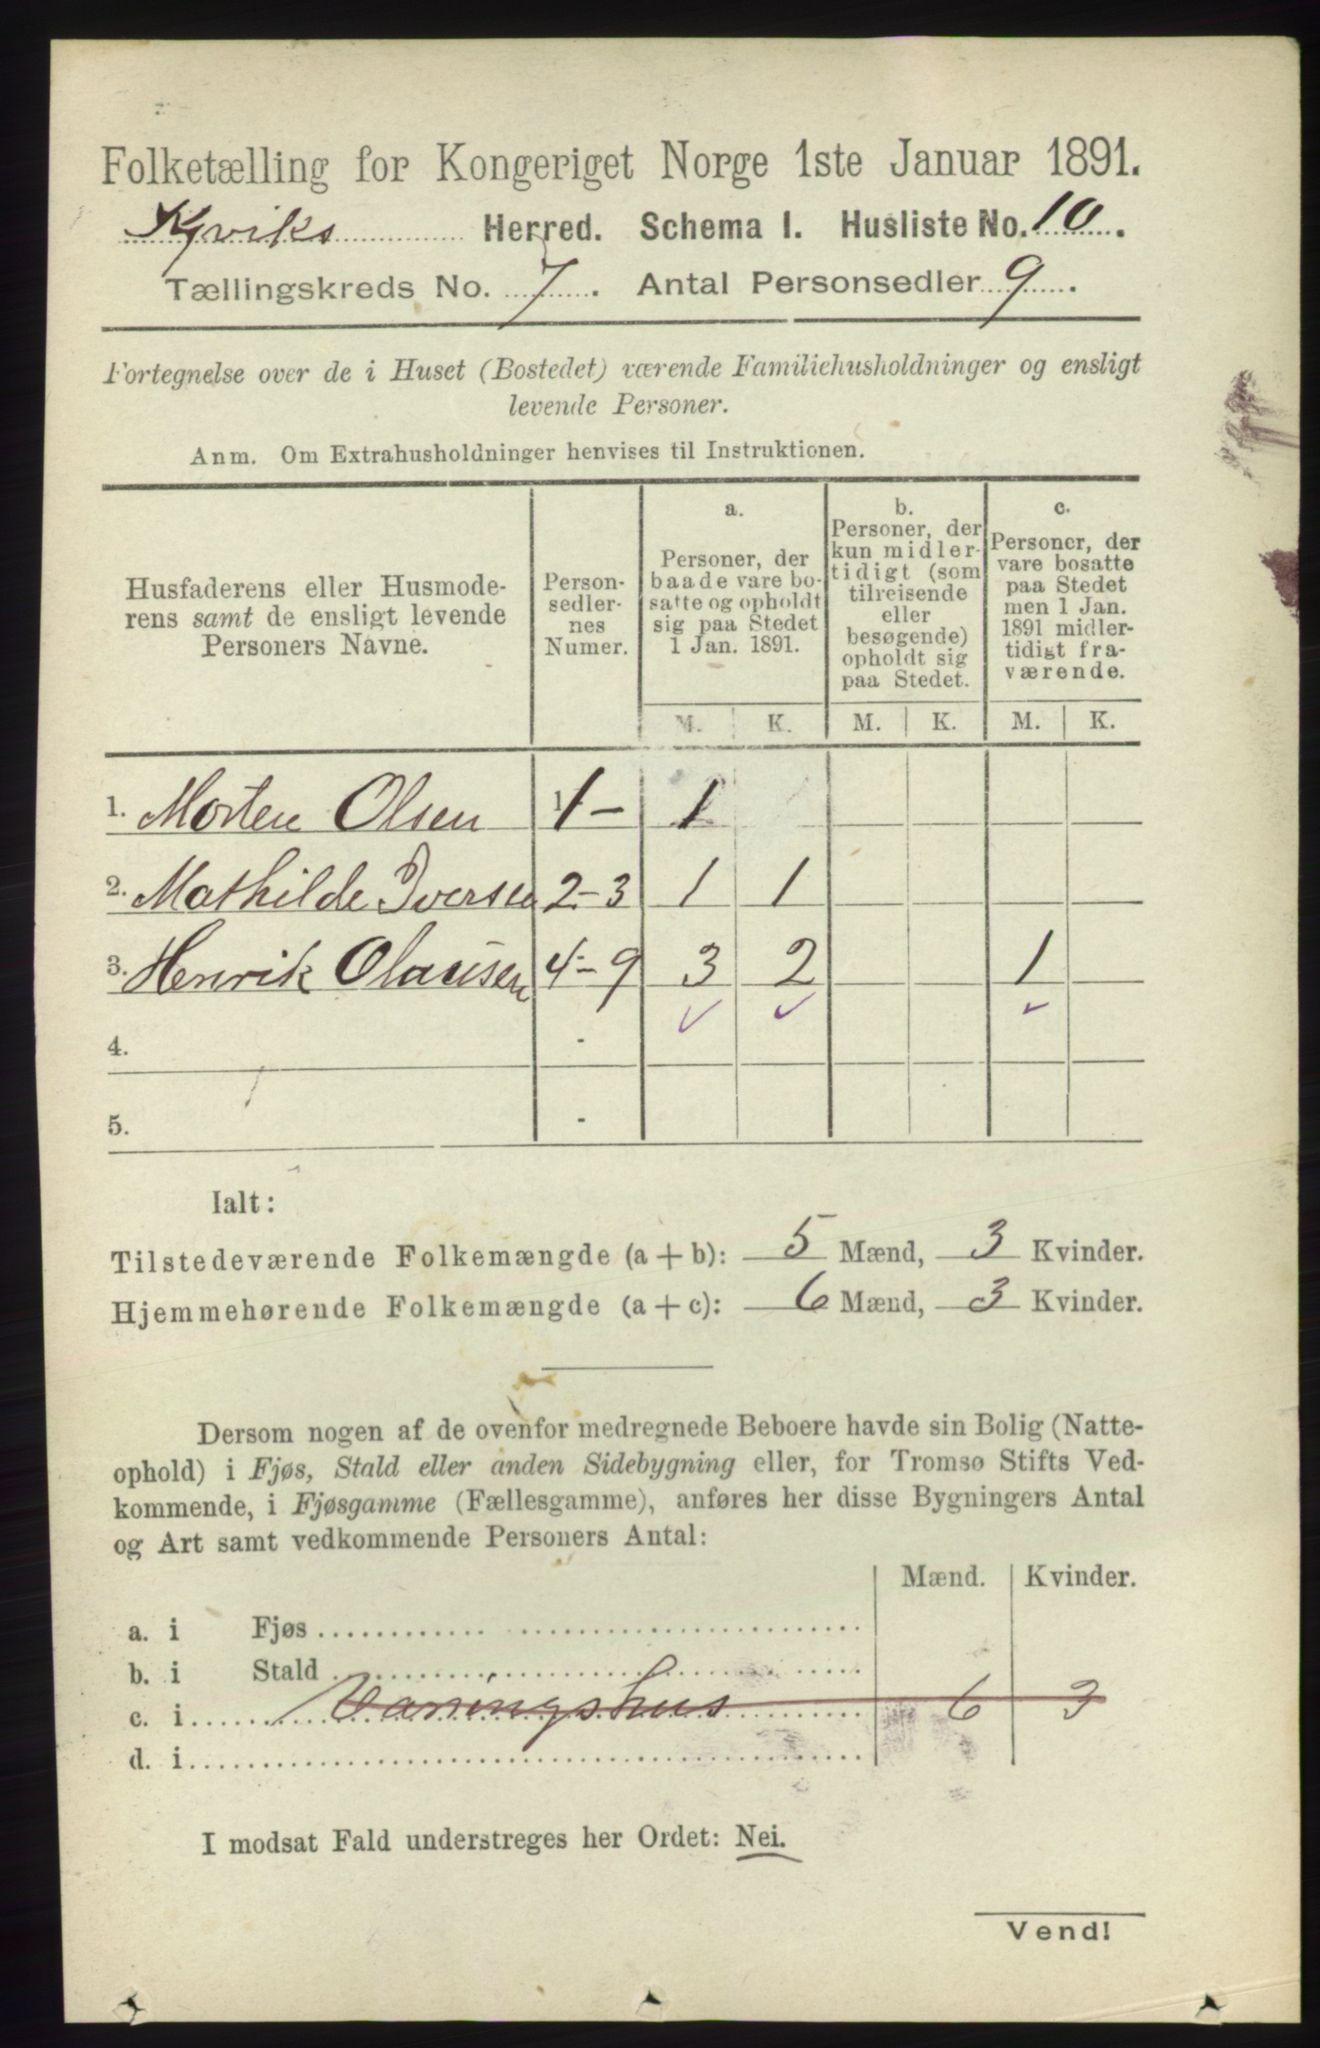 Folketælling for Kongeriget Norge 1ste Januar 1891.
Kjviks Herred. Schema I. Husliste No. 10.
Tællingskreds No. 7. Antal Personsedler 9.
Fortegnelse over de i Huset (Bostedet) værende Familiehusholdninger og ensligt
levende Personer.
Anm. Om Extrahusholdninger henvises til Instruktionen.
Husfaderens eller Husmode-
rens samt de ensligt levende
Personers Navne.
Person-
sedler-
nes
Numer.
a.
Personer, der
baade vare bo-
satte og opholdt
sig paa Stedet
1 Jan. 1891.
b.
Personer, der
kun midler-
tidigt (som
tilreisende
eller
besøgende)
opholdt sig
paa Stedet.
c.
Personer, der
vare bosatte
paa Stedet
men 1 Jan.
1891 midler-
tidigt fra-
værende.
M. K. M. K. M. K.
1. Morten Olsen 1 - 1
2. Mathilde Iversen 2-3 1 1
3. Henrik Olausen 4-9 3 2 1
4. -
5. -
Ialt:
Tilstedeværende Folkemængde (a + b): 5 Mænd, 3 Kvinder.
Hjemmehørende Folkemængde (a + c): 6 Mænd, 3 Kvinder.
Dersom nogen af de ovenfor medregnede Beboere havde sin Bolig (Natte-
ophold) i Fjøs, Stald eller anden Sidebygning eller, for Tromsø Stifts Ved-
kommende, i Fjøsgamme (Fællesgamme), anføres her disse Bygningers Antal
og Art samt vedkommende Personers Antal:
Mænd. Kvinder.
a. i Fjøs
b. i Stald
c. i Vaaningshus 6 3
d. i
I modsat Fald understreges her Ordet: Nei.
Vend!